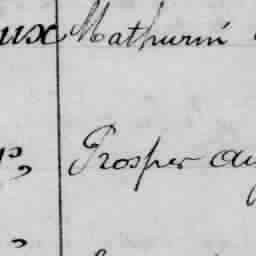 ux Mathurin
Prosper au